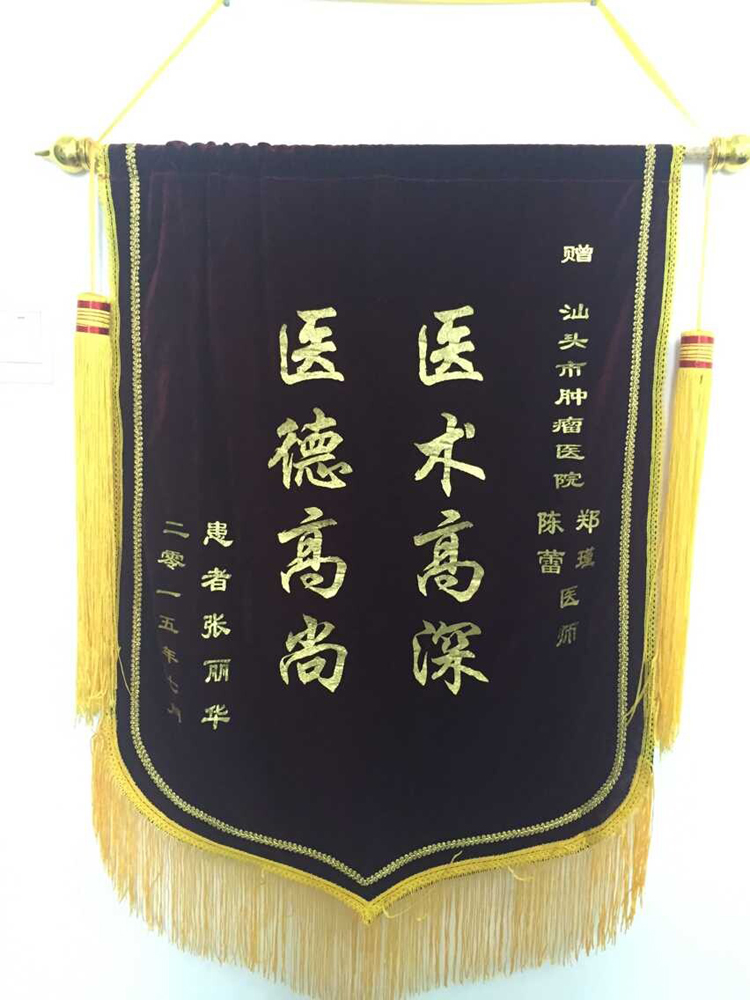 赠 汕头市肿瘤医院
郑瑾
陈蕾
医师
医术高深
医德高尚
患者张丽华
二零一五年七月